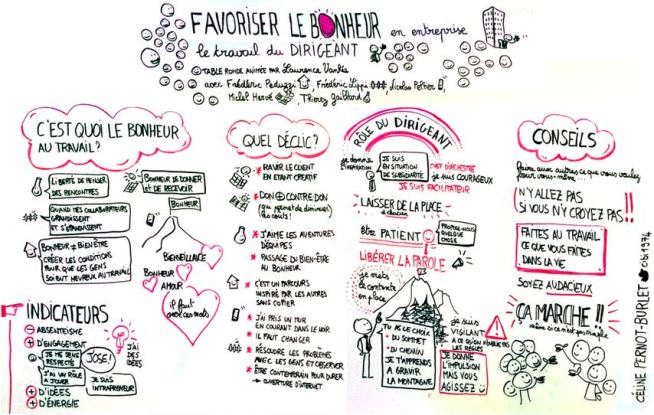 FAVORISER LE BONHEUR en entreprise
le travail du DIRIGEANT
TABLE RONDE ANIMÉE PAR Laurence Vanhée
avec Frédéric Peduzzi, Frédéric Lippi, Nicolas
Michel Hervé Thierry Gaillard
C'EST QUOI LE BONHEUR
AU TRAVAIL?
LIBERTÉ DE PENSER
DES RENCONTRES
QUAND TES COLLABORATEURS
GRANDISSENT
ET S'ÉPANOUISSENT
BONHEUR ≠ BIEN-ÊTRE
CRÉER LES CONDITIONS
POUR QUE LES GENS
SOIENT HEUREUX AU TRAVAIL
BONHEUR DE DONNER
et DE RECEVOIR
BONHEUR
BIENVEILLANCE
BONHEUR
AMOUR
il faut
oser ces mots
INDICATEURS
ABSENTÉISME
D'ENGAGEMENT
JE ME SENS
RESPECTÉ
J'AI UN RÔLE
À JOUER
J'OSE!
J'AI
DES
IDÉES
JE SUIS
INTRAPRENEUR
D'IDÉES
D'ÉNERGIE
QUEL DÉCLIC?
RAVIR LE CLIENT
EN ÉTANT CRÉATIF
DON CONTRE-DON
(ça permet de diminuer
les coûts!)
J'AIME LES AVENTURES
D'ÉQUIPES
PASSAGE DU BIEN-ÊTRE
AU BONHEUR
C'EST UN PARCOURS
INSPIRÉ PAR LES AUTRES
SANS COPIER
J'AI PRIS UN MUR
EN COURANT DANS LE NOIR
IL FAUT CHANGER
RÉSOUDRE LES PROBLÈMES
AVEC LES GENS ET OBSERVER
ÊTRE CONTEMPORAIN POUR DURER
→ OUVERTURE D'INTERNET
RÔLE DU DIRIGEANT
je donne
l'INSPIRATION
JE SUIS
EN SITUATION
DE SUBSIDIARITÉ
CHEF D'ORCHESTRE
je suis COURAGEUX
JE SUIS FACILITATEUR
LAISSER DE LA PLACE
à chacun
être PATIENT
PROPOSE-NOUS
QUELQUE
CHOSE
LIBÉRER LA PAROLE
je mets
la confiance
en place
TU AS LE CHOIX
DU SOMMET
DU CHEMIN
JE T'APPRENDS
À GRAVIR
LA MONTAGNE
je suis
VIGILANT
LES RÈGLES
JE DONNE
L'IMPULSION
MAIS VOUS
AGISSEZ
CONSEILS
faire aux autres ce que vous voulez
pour vous-même
N'Y ALLEZ PAS
SI VOUS N'Y CROYEZ PAS!!
FAITES AU TRAVAIL
CE QUE VOUS FAITES
DANS LA VIE
SOYEZ AUDACIEUX
ÇA MARCHE!!
même si ce n'est pas simple
CÉLINE PERNOT-BURLET cibi1974